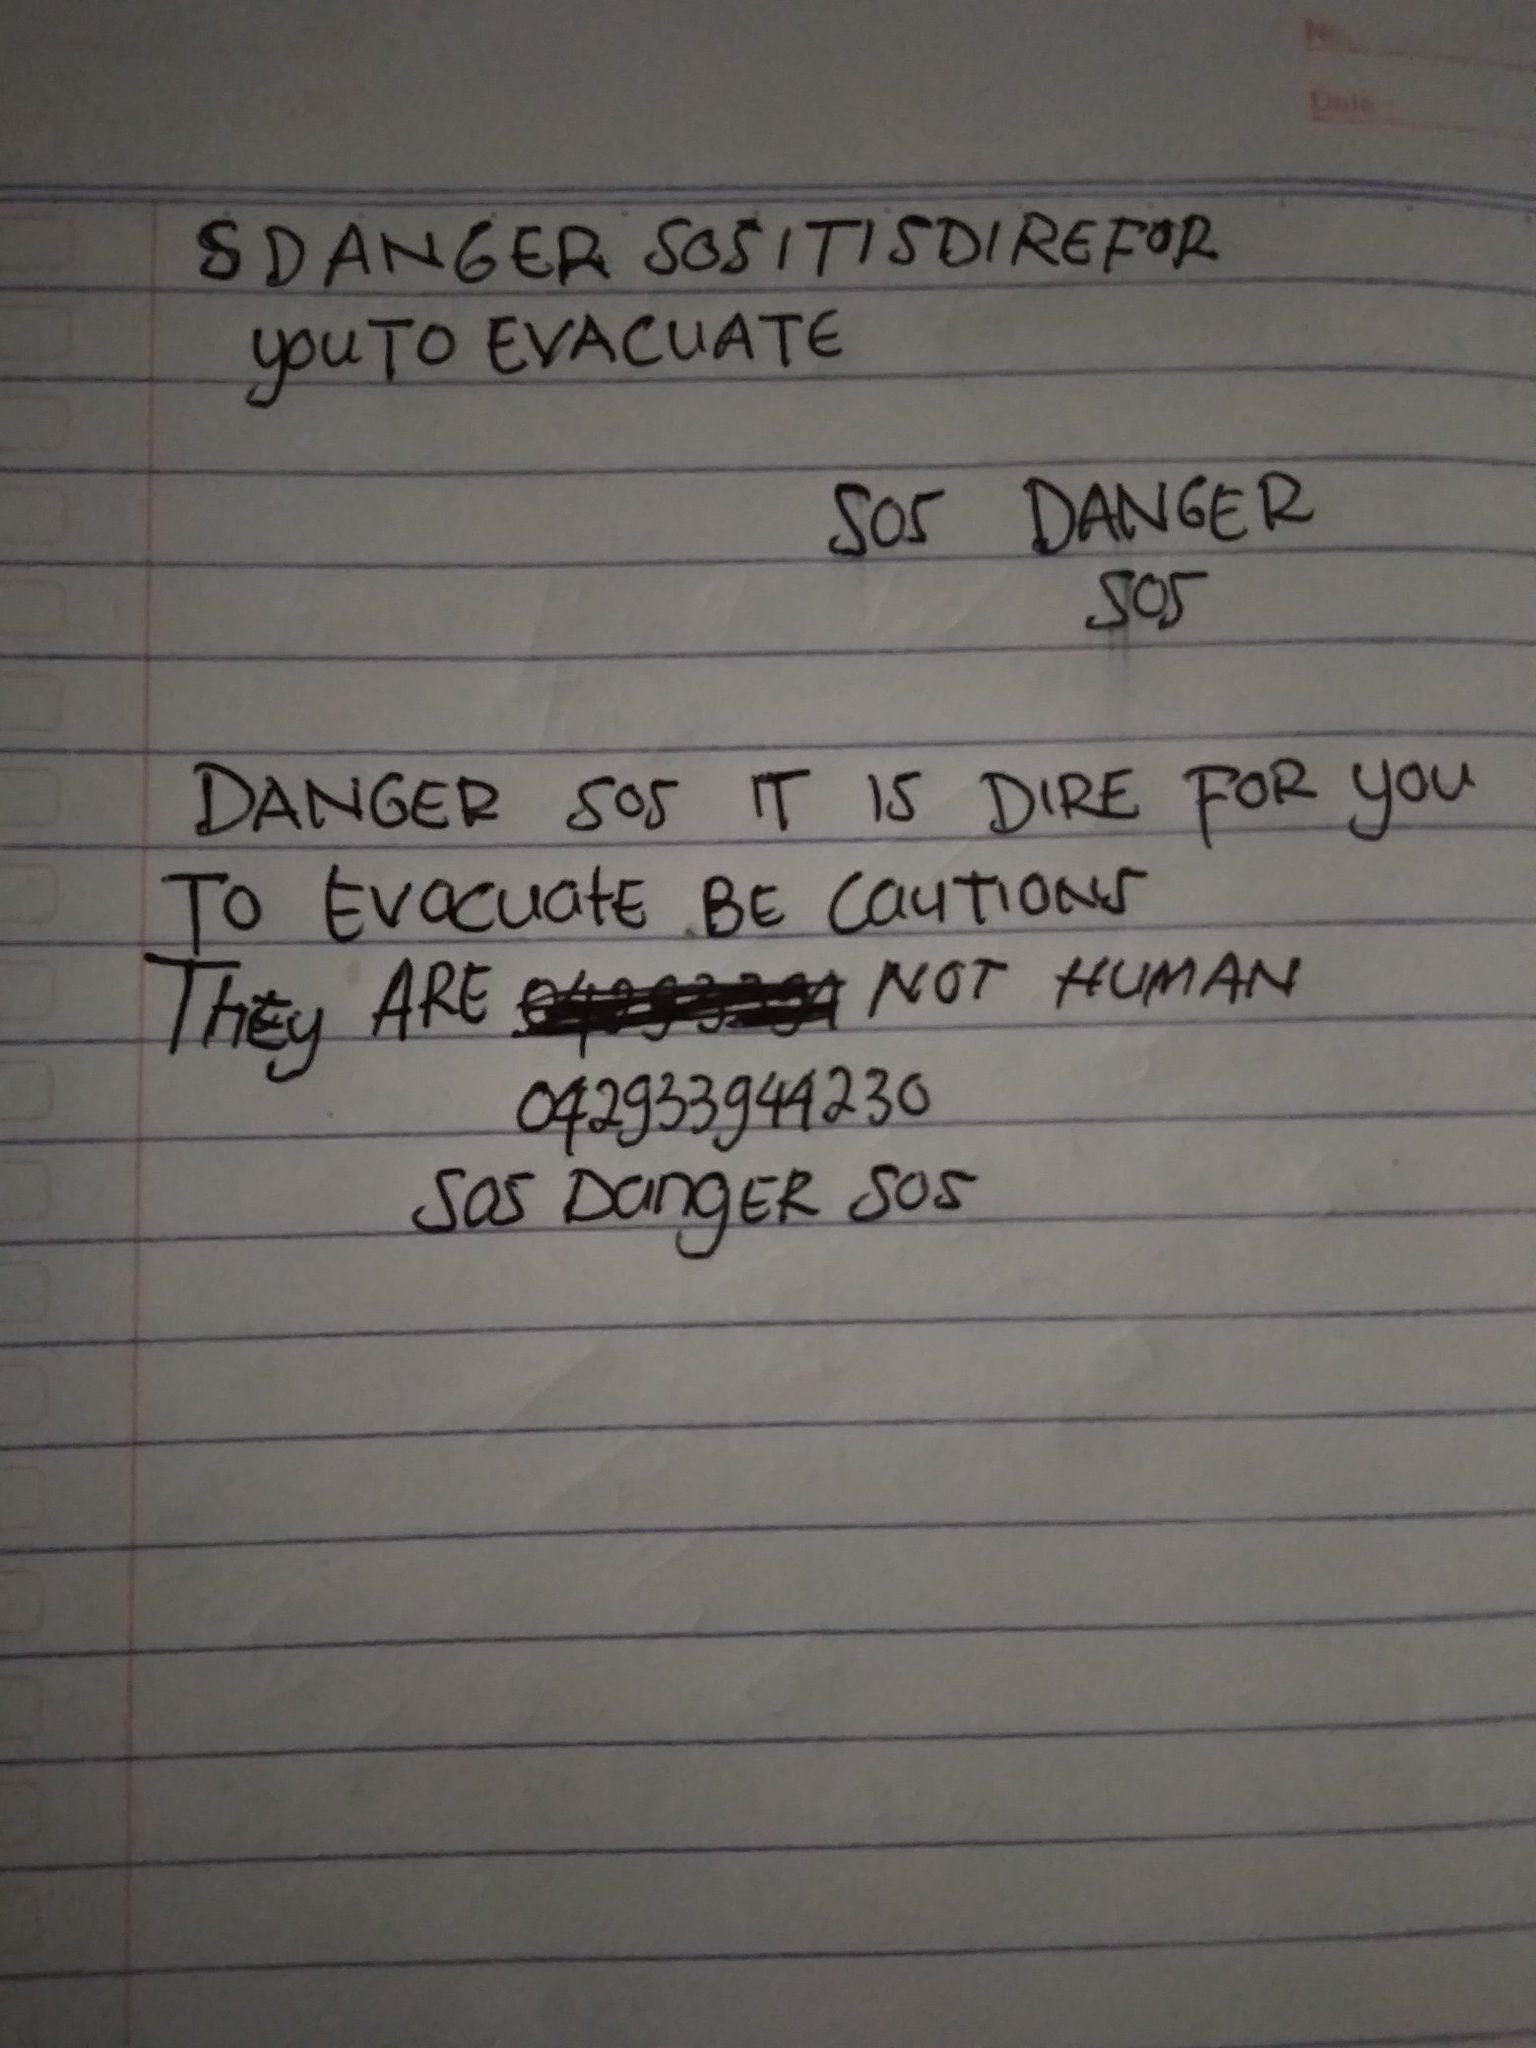 No.
Date :
SDANGER SOSITISDIREFOR
youTO EVACUATE
SOS DANGER
SOS
DANGER SOS IT IS DIRE FOR YOU
TO EVacuatE BE CauTIONS
They ARE NOT HUMAN
042933944230
SOS DangER SOS